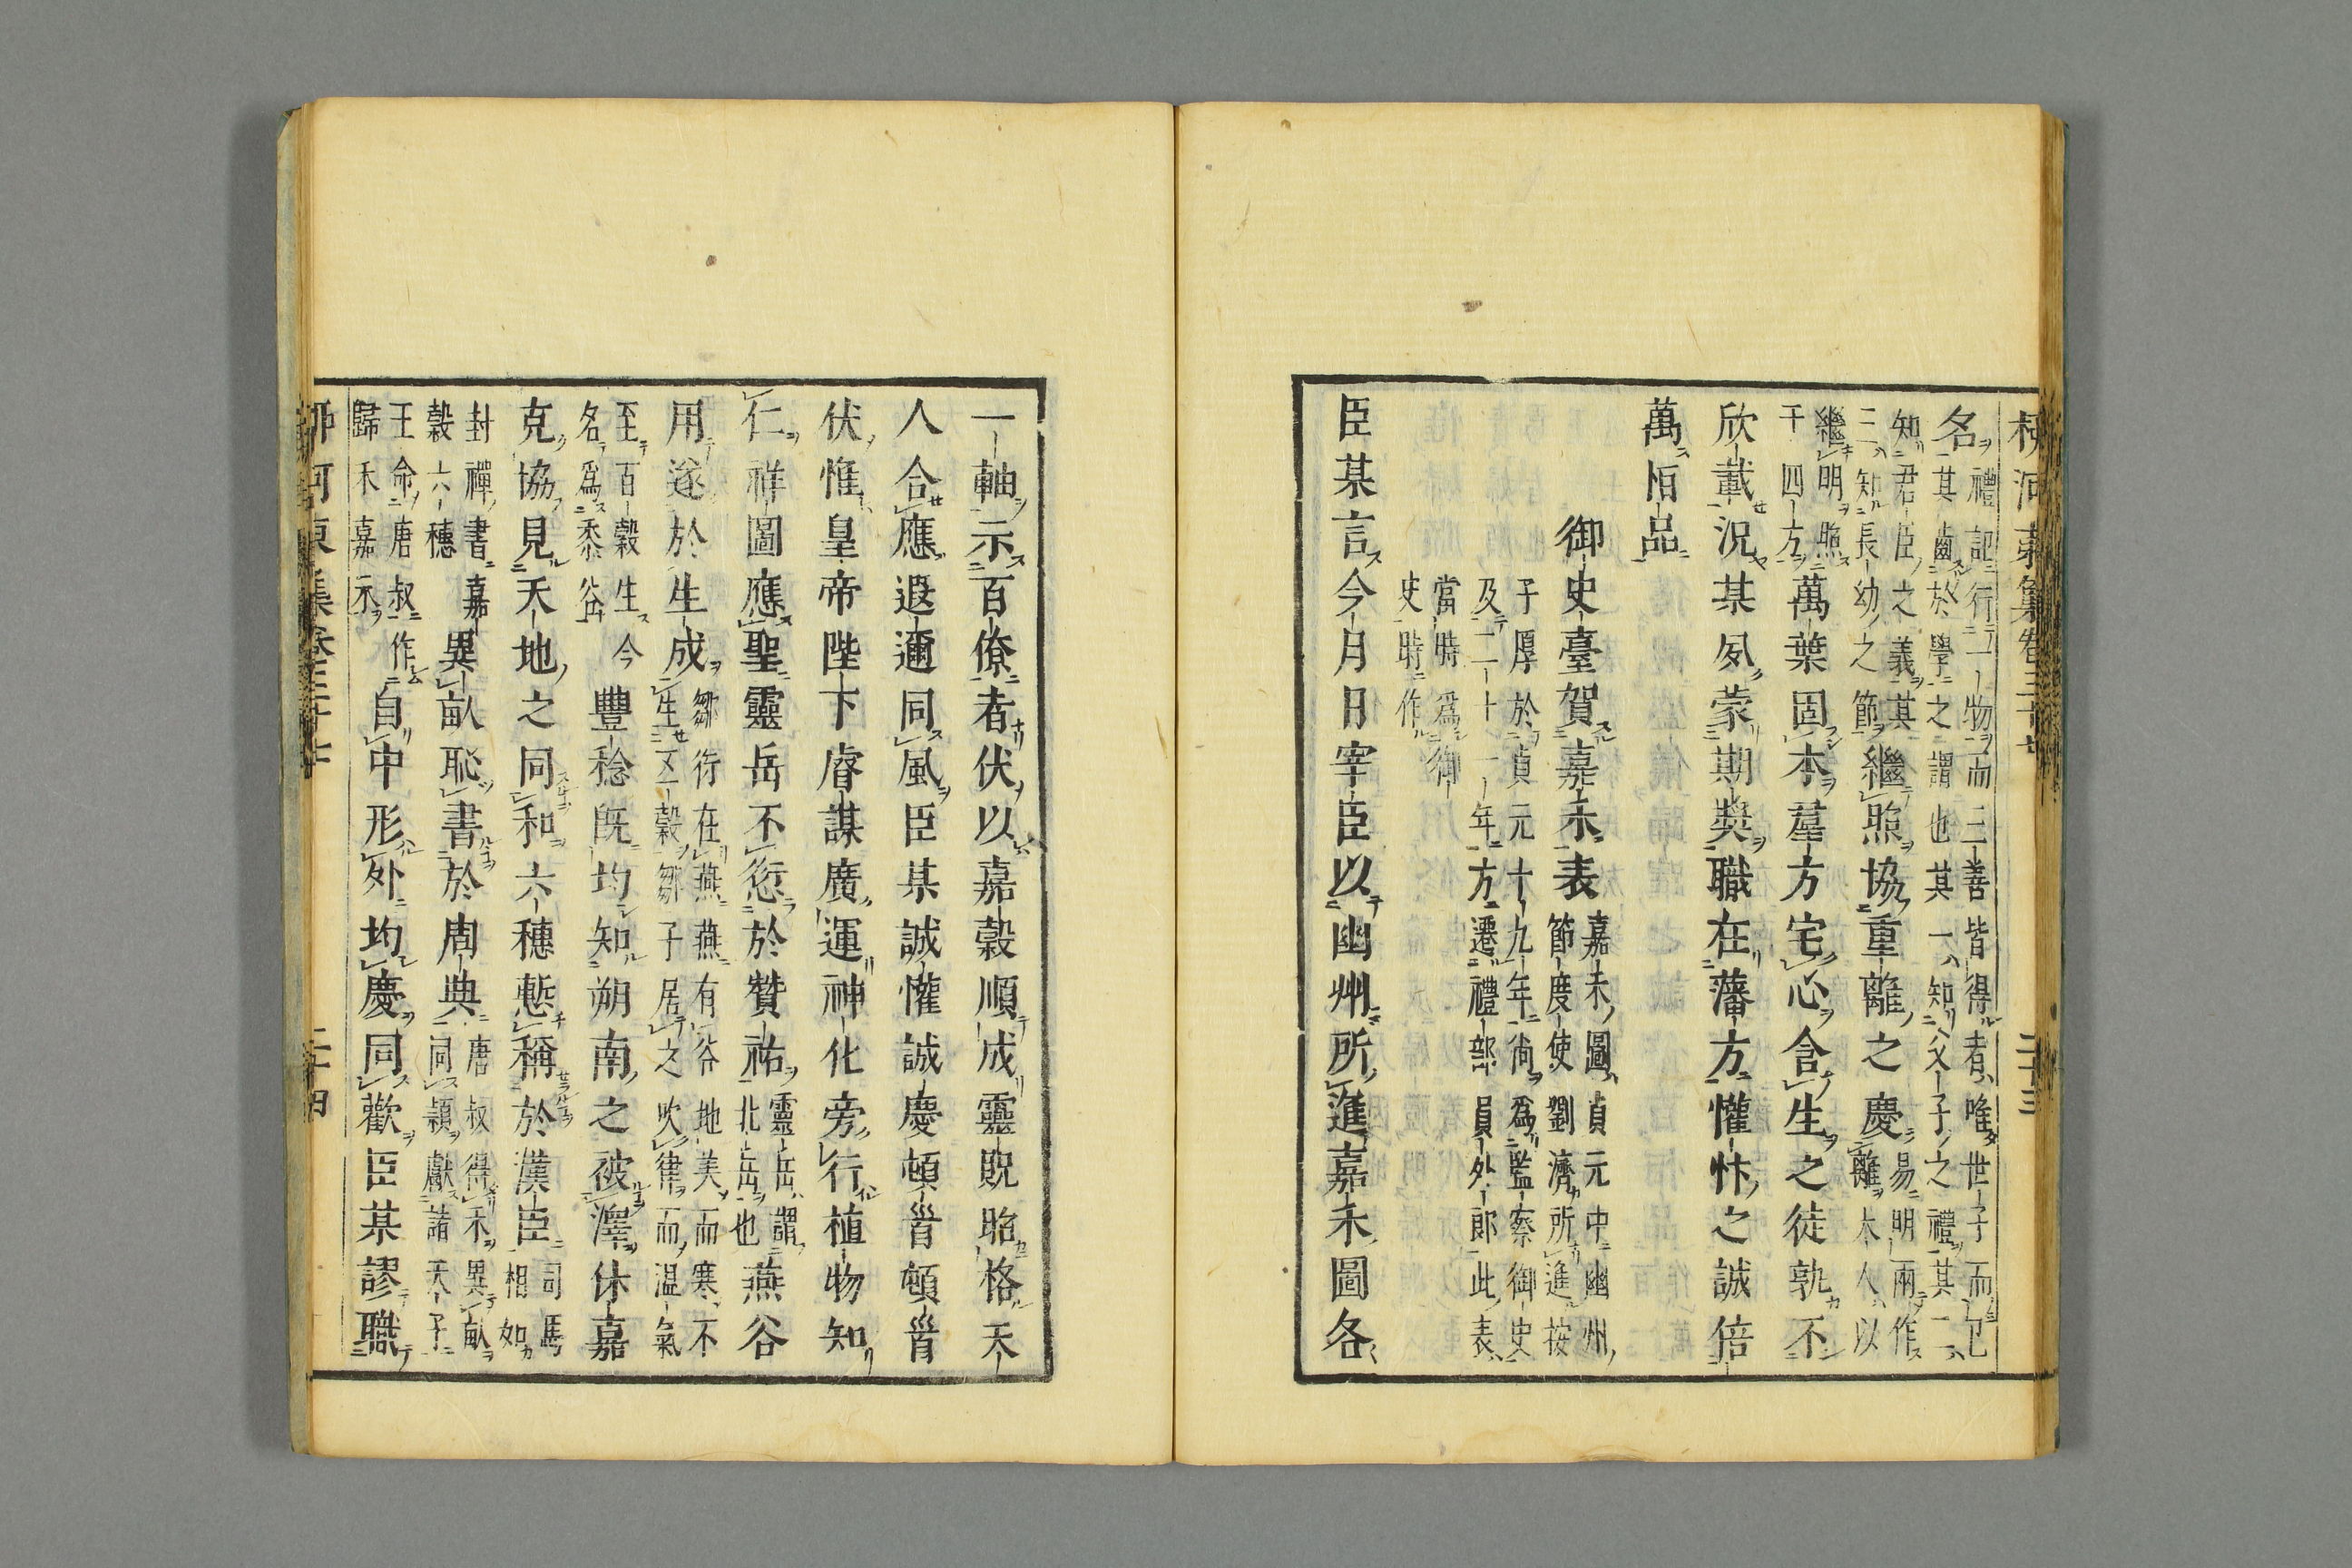 名禮記行一物而三善皆得者唯世子而已
其齒於學之謂也其一知父子之禮其二
知君臣之義其
三知長幼之節繼照協重離之慶易明兩作
離大人以
繼明照
于四方萬葉固本羣方宅心含生之徒孰不
欣載況某夙蒙期奬職在藩方懽忭之誠倍
萬恒品
御史臺賀嘉禾表嘉禾圖貞元中幽州
節度使劉濟所進按
子厚於貞元十九年尚爲監察御史
及二十一年方遷禮部員外郎此表
當時爲御
史時作
臣某言今月日宰臣以幽州所進嘉禾圖各
一軸示百僚者伏以嘉穀順成靈貺昭格天
人合應遐邇同風臣某誠懽誠慶頓首頓首
伏惟皇帝陛下睿謀廣運神化旁行植物知
仁祥圖應聖靈岳不愆於贊祐靈岳謂
北岳也燕谷
用遂於生成鄒衍在燕燕有谷地美而寒不
生五穀鄒子居之吹律而溫氣
至百穀生今
名爲黍谷豐稔既均知朔南之被澤休嘉
克協見天地之同和六穗慙稱於漢臣司馬
相如
封禪書嘉
穀六穗異畝恥書於周典唐叔得禾異畝
同穎獻諸天子
王命唐叔作
歸禾嘉禾自中形外均慶同歡臣某謬職
柳河東集卷三十七
二十四